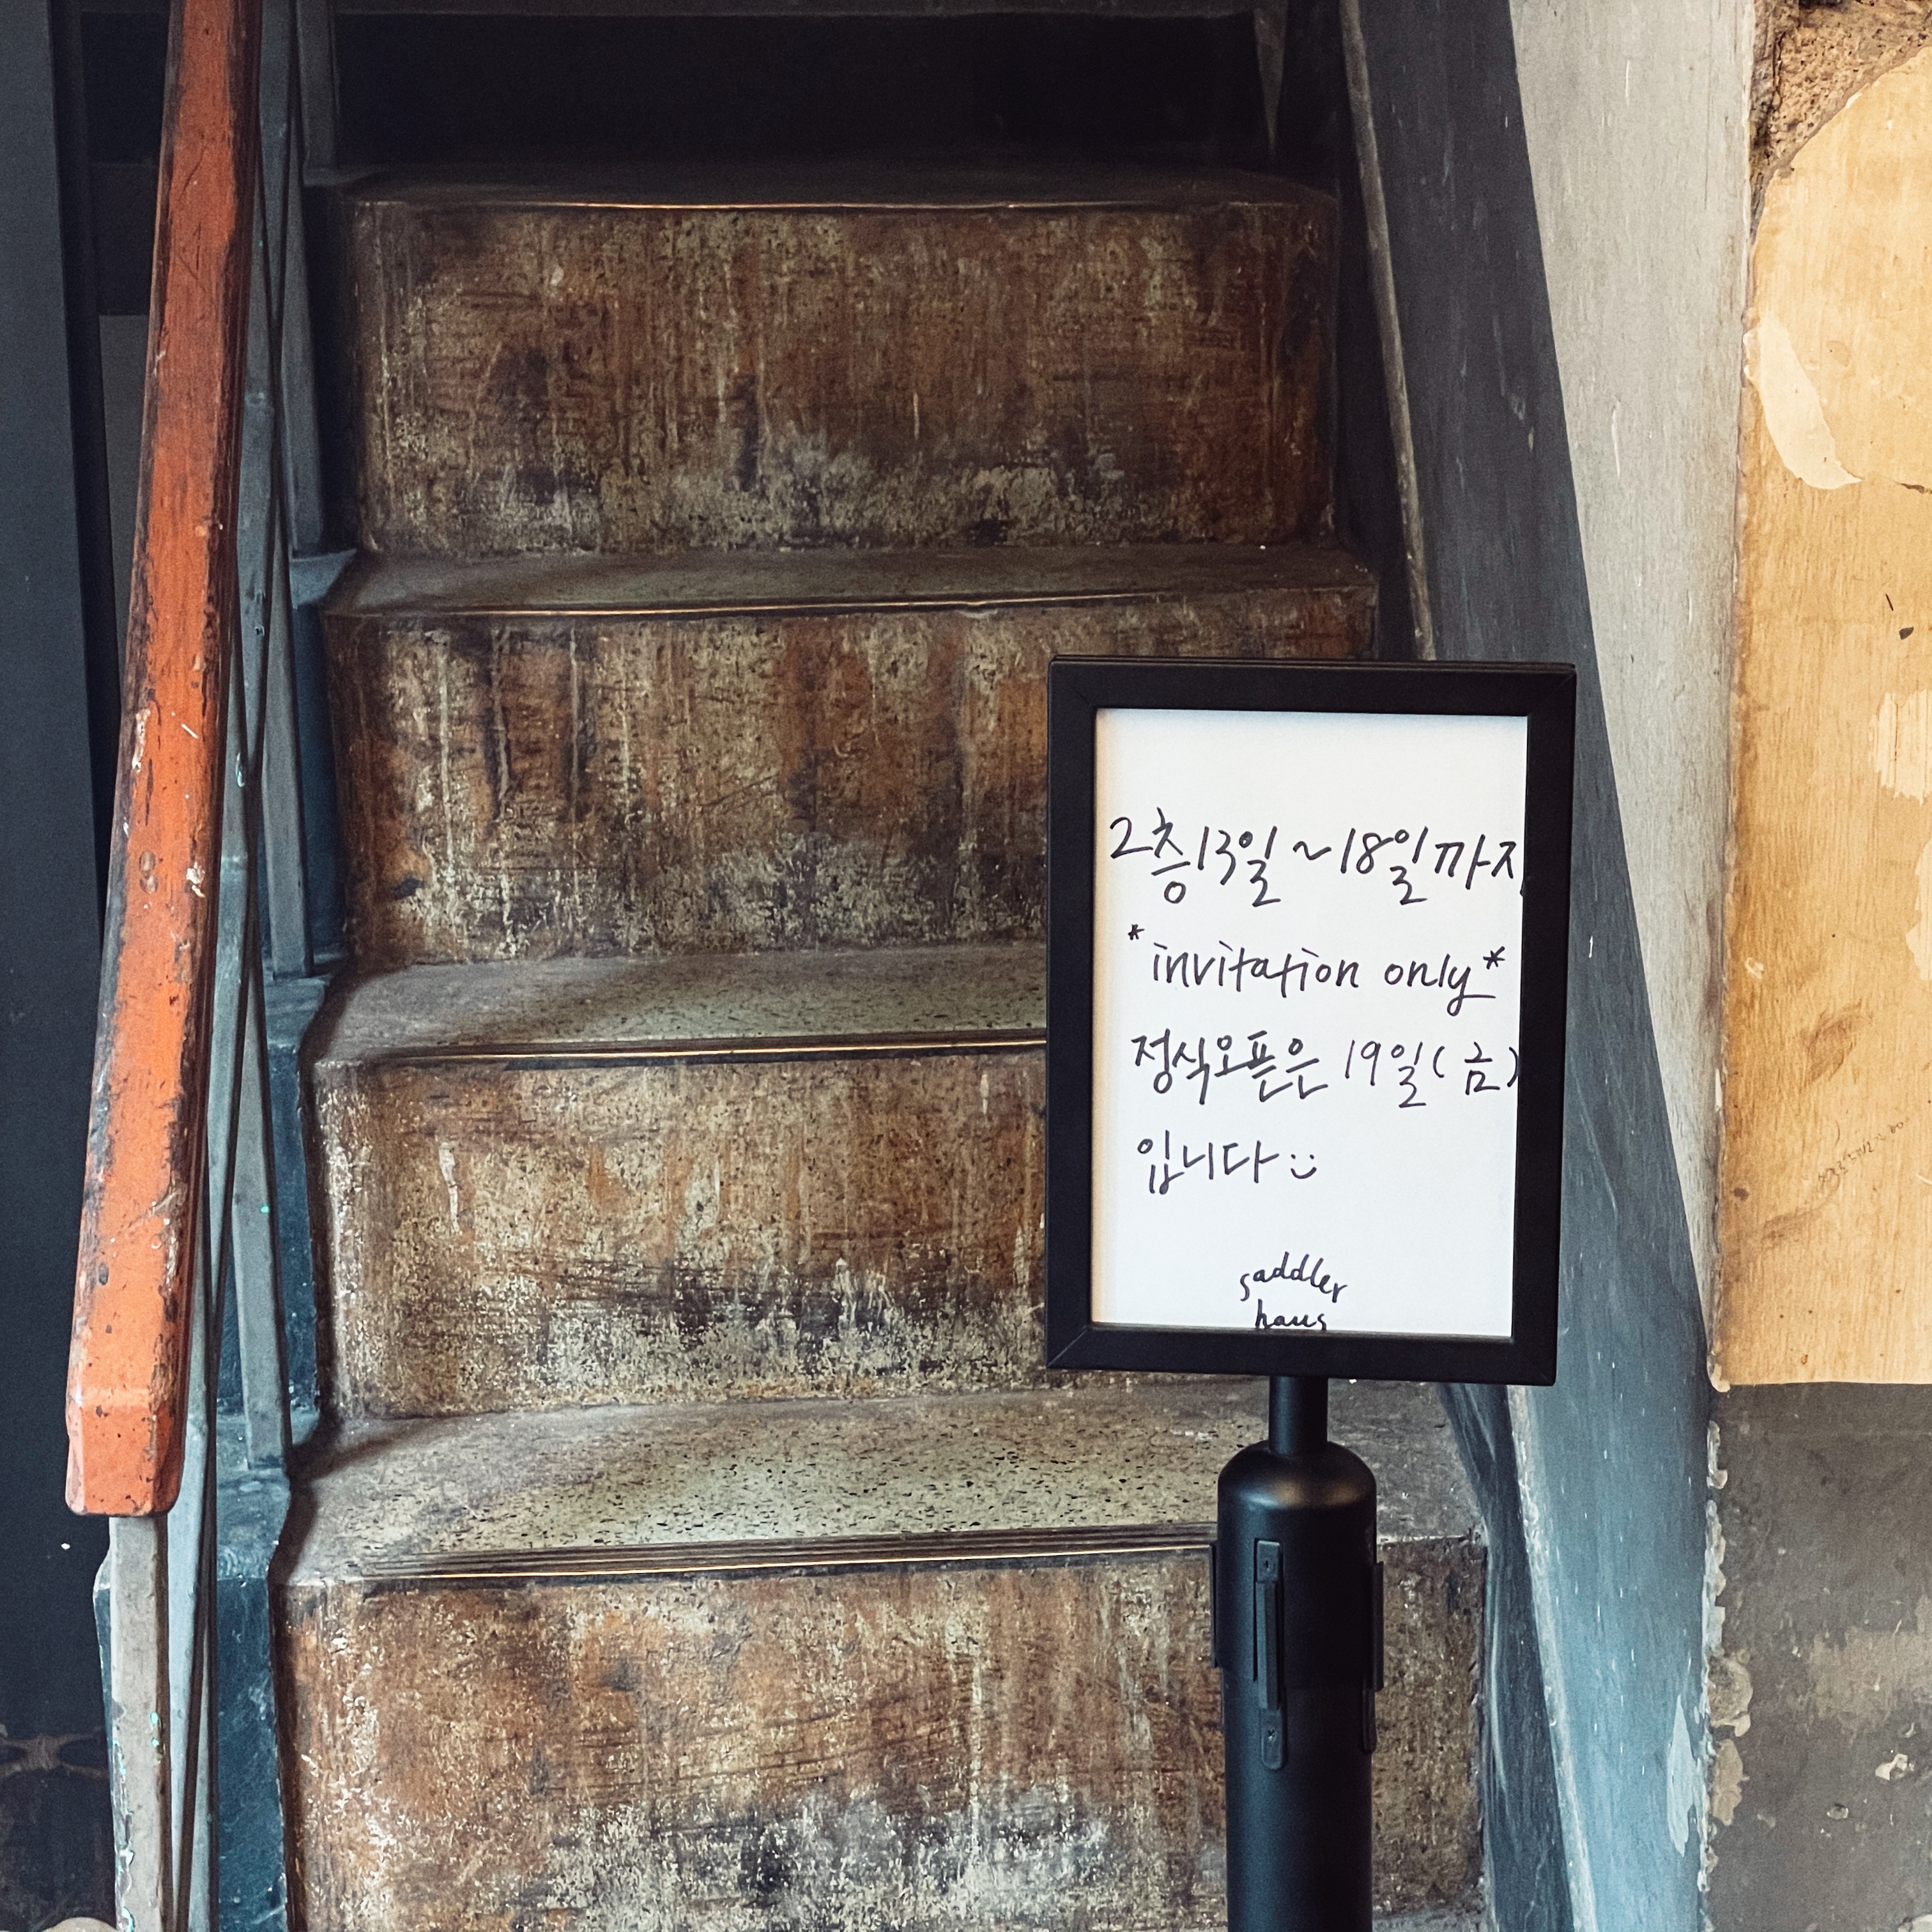 2층 13일 ~ 18일까지
*invitation only*
정식오픈은 19일(금)
입니다 :)
saddler
haus